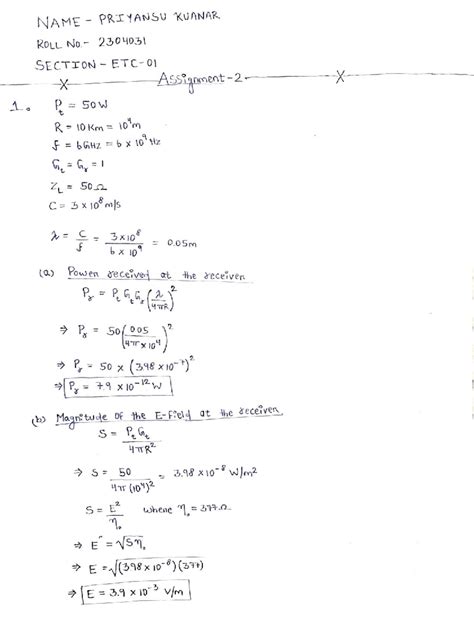 NAME - PRIYANSU KUANAR
ROLL NO.- 2304031
SECTION - ETC-01
Assignment-2
1. P_t = 50W
R = 10 Km = 10⁴m
f = 6GHz = 6 × 10⁹ Hz
G_t = G_r = 1
Z_L = 50Ω
C = 3 × 10⁸ m/s
λ = C/f = 3×10⁸/6×10⁹ = 0.05m
(a) Power received at the receiver
P_r = P_t G_t G_r (λ/4πR)²
⇒ P_r = 50 (0.05/4π×10⁴)²
⇒ P_r = 50 × (3.98 × 10⁻⁷)²
⇒ P_r = 7.9 × 10⁻¹² W
(b) Magnitude of the E-Field at the receiver
S = P_t G_t/4πR²
⇒ S = 50/4π(10⁴)² = 3.98 × 10⁻⁸ W/m²
S = E²/η₀ where η₀ = 377Ω
⇒ E = √Sη₀
⇒ E = √(3.98 × 10⁻⁸)(377)
⇒ E = 3.9 × 10⁻³ V/m